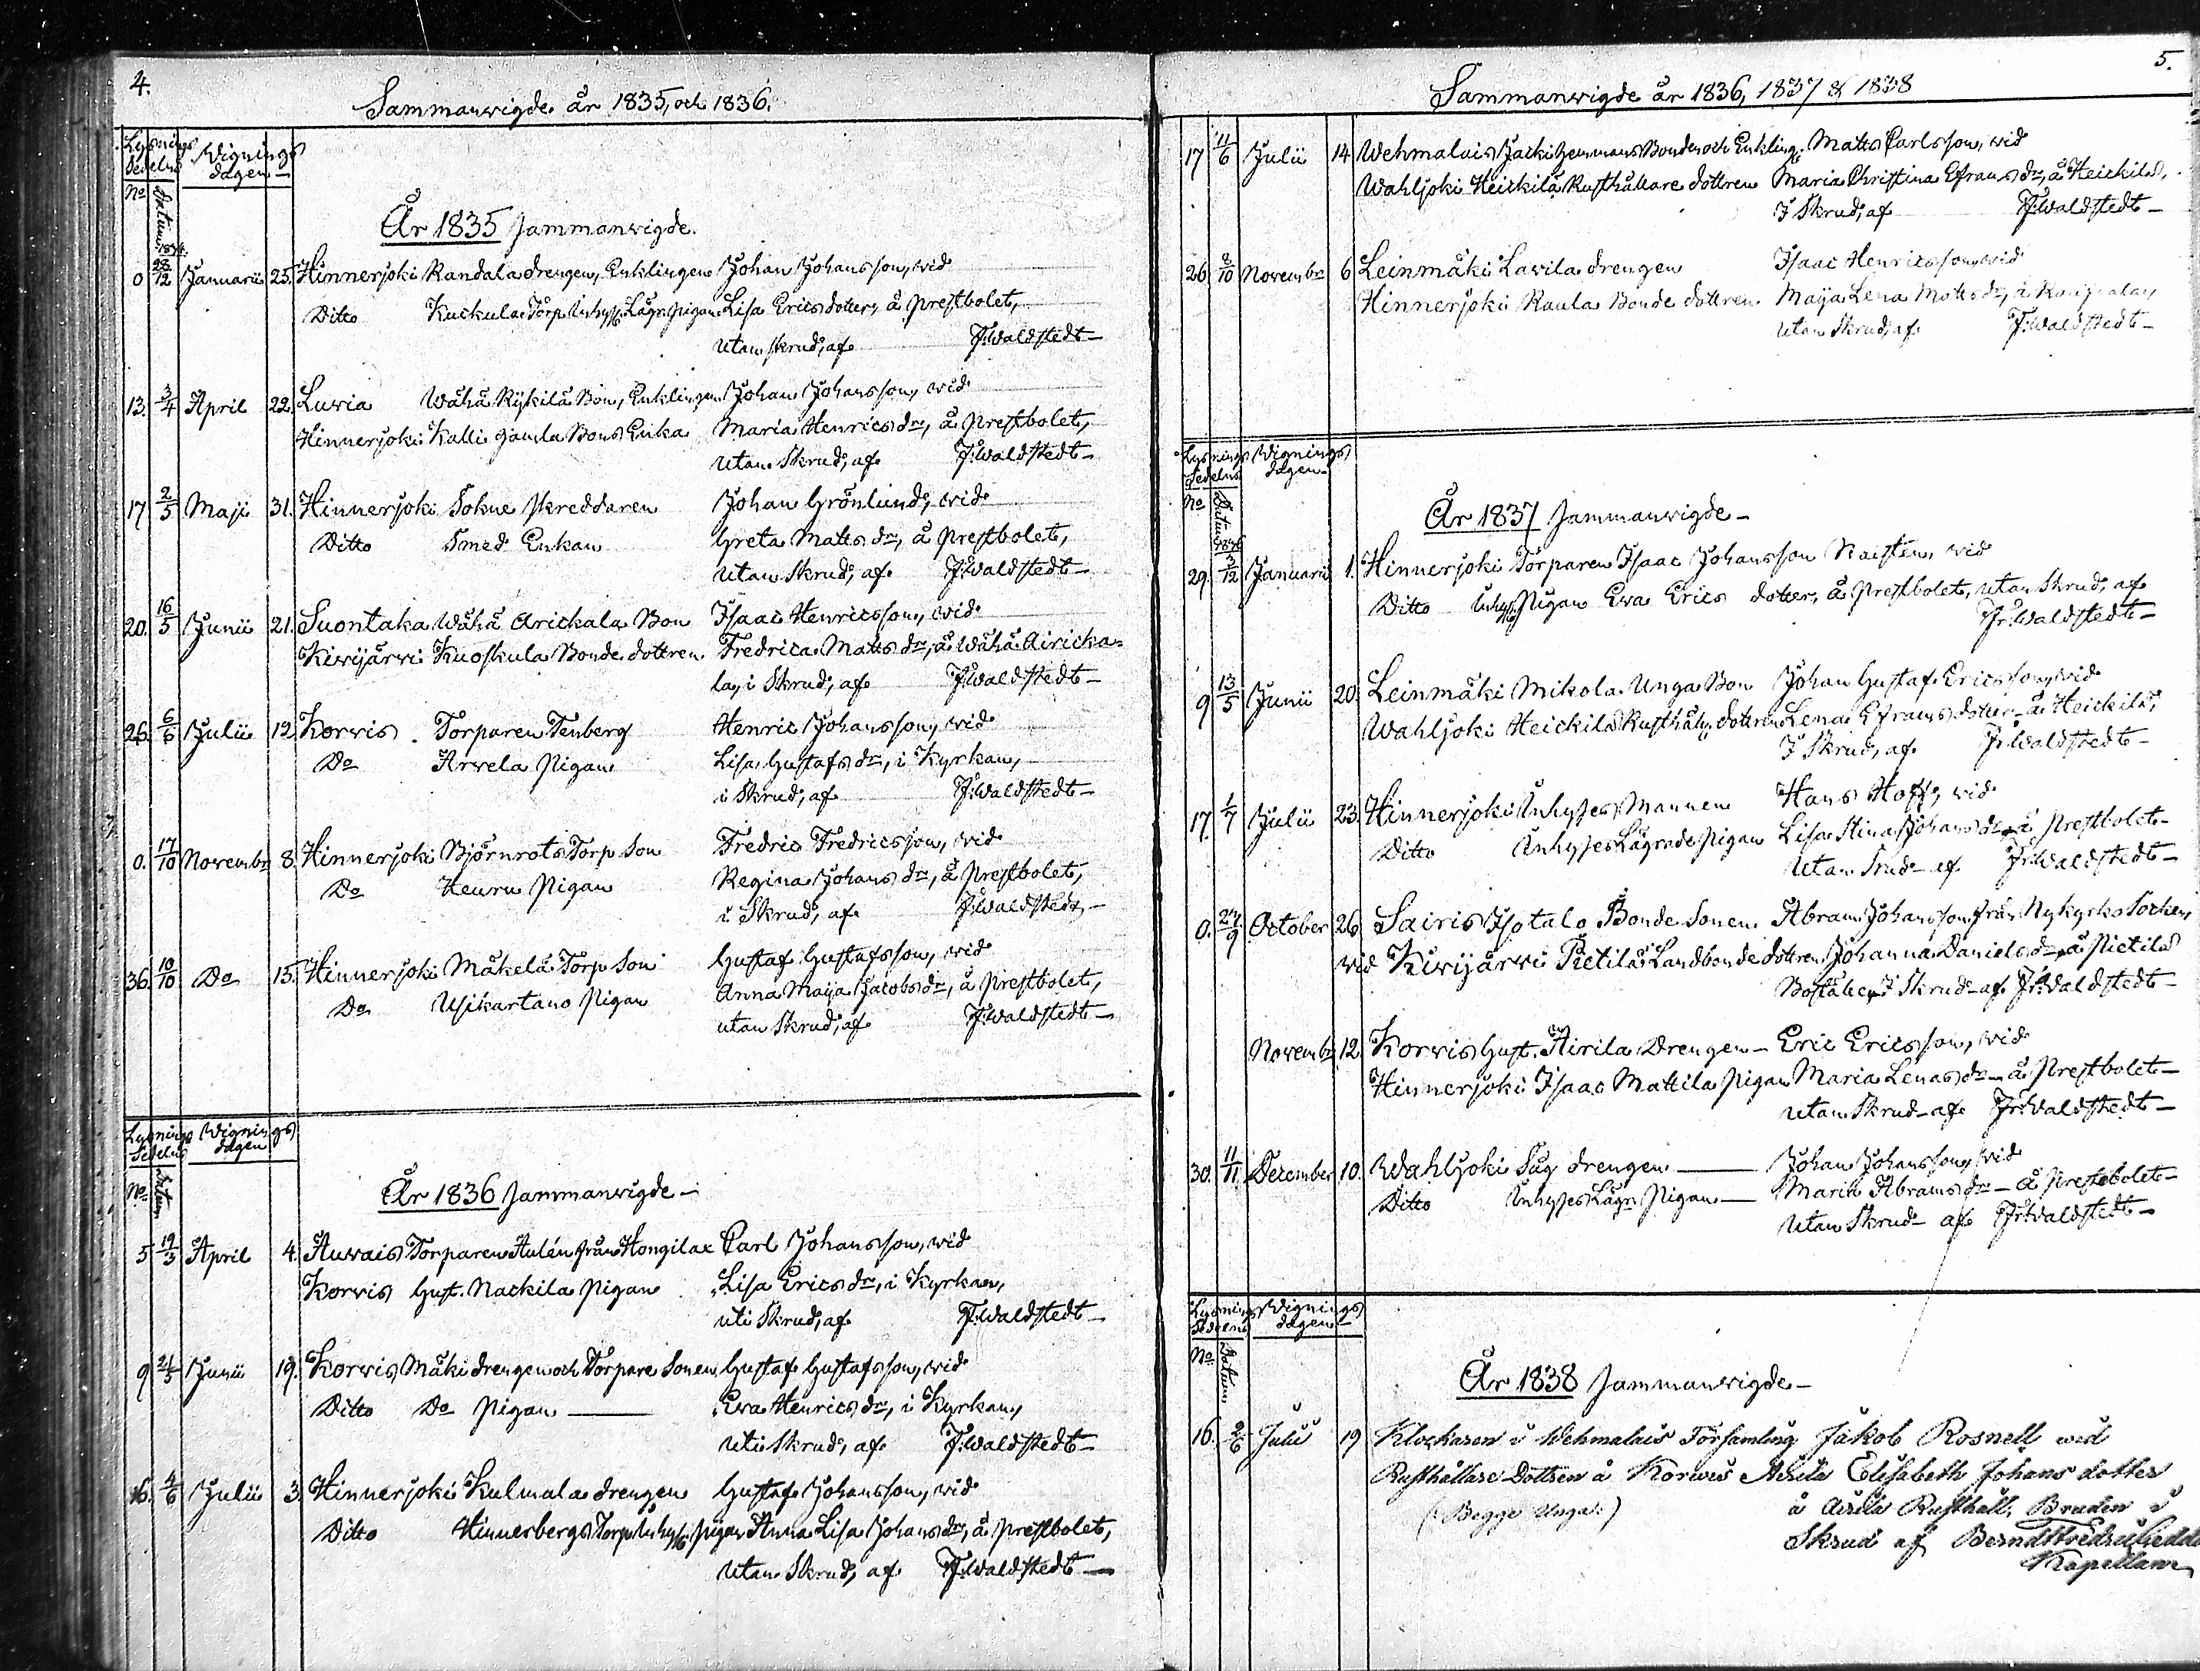 4.
Sammanwigde år 1835, och 1836.
Lysnings Sedelns
Wignings dagen
No Datum
År 1835 Sammanwigde.
1834.
0 28/12 Januarii 25. Hinnerjoki Randala drengen, Enklingen Johan Johansson, wid
Ditto Kuckula Torp Inhys. Lägr. pigan Lisa Ericsdotter, å prestbolet,
utan skrud, af F. Waldstedt
13. 3/4 April 22. Luvia Wähä Rykilä Bon, Enklingen Johan Johansson, wid
Hinnerjoki Kalli gamla Bons Enka Maria Henricsdr, å prestbolet,
utan Skrud, af F. Waldstedt
17 2/5 Maji 31. Hinnerjoki Sokne skreddaren Johan Grönlund, wid
Ditto Smed Enkan Greta Mattsdr, å prestbolet,
utan Skrud, af F. Waldstedt
20. 16/5 Junii 21. Suontaka Wähä Arickala Bon Isaac Henricsson, wid
Kiwijärwi Kuoskula Bonde dottren Fredrica Mattsdr, å Wähä Airicka-
la, i Skrud, af F. Waldstedt
26. 6/6 Julii 12 Korvis Torparen Tenberg Henric Johansson, wid
Do Arwela pigan Lisa Gustafsdr, i Kyrkan,
i Skrud, af F. Waldstedt
0. 17/10 Novembr 8. Hinnerjoki Björnrots Torp Son Fredric Fredricsson, wid
Do Heuru pigan Regina Johansdr, å prestbolet,
i Skrud, af F. Waldstedt
36. 10/10 Do 15. Hinnerjoki Mäkelä Torp Son Gustaf Gustafsson, wid
Do Usikartano pigan Anna Maija Jacobsdr, å prestbolet,
utan Skrud, af F. Waldstedt
Lysnings Sedelns
Wignings dagen
No Datum
År 1836 Sammanwigde
5 19/3 April 4. Auvais Torparen Aulén från Hongila Carl Johansson, wid
Korvis Gust. Nackila pigan Lisa Ericsdr, i Kyrkan,
uti Skrud, af F. Waldstedt
9 21/5 Junii 19. Korvis Mäki drengen och Torpare Sonen Gustaf Gustafsson, wid
Ditto Do pigan Ewa Henricsdr, i Kyrkan,
uti Skrud, af F. Waldstedt
16. 4/6 Julii 3. Hinnerjoki Kulmala drengen Gustaf Johansson, wid
Ditto Hinnerbergs Torp Inhys. pigan Anna Lisa Johansdr, å prestbolet,
utan Skrud, af F. Waldstedt
5.
Sammanwigde år 1836, 1837 & 1838
17 11/6 Julii 14 Wehmalais Jacki Hemmans Bonden och Enkling. Matts Carlsson, wid
Wahljoki Heickilä Rusthållare dottren Maria Christina Efraimsdr, å Heickilä,
I Skrud, af F. Waldstedt
26. 8/10 Novembr 6 Leinmäki Lavila drengen Isaac Henricsson, wid
Hinnerjoki Raula Bonde dottren Maija Lena Mattsdr, å
utan Skrud, af F. Waldstedt
Lysnings Sedelns
Wignings dagen
No Datum
År 1837 Sammanwigde
1836
29. 3/12 Januarii 1. Hinnerjoki Torparen Isaac Johansson Raisten, wid
Ditto Inhys. Pigan Ewa Erics dotter, å Prestbolet, utan Skrud, af
Fr. Waldstedt
9 13/5 Junii 20. Leinmäki Mikola Unga Bon Johan Gustaf Ericsson, wid
Wahljoki Heickilä Rusthåll. dottren Lena Efraimsdotter å Heickilä,
I Skrud, af Fr. Waldstedt
17. 1/7 Julii 23. Hinnerjoki Inhyses Mannen Hans Hoff, wid
Ditto Inhyses Lägrade pigan Lisa Stina Johansdr å prestbolet
utan Srud af Fr. Waldstedt
0. 27/9 October 26 Sairis Isotalo Bonde Sonen Abram Johansson från Nykyrko Socken,
wid Kiwijärwi Pietilä Landbonde dottren Johanna Danielsdr å Pietilä
Boställe, I Skrud af Fr. Waldstedt
Novembr 12 Korvis Gust. Äirila Drengen Eric Ericsson, wid
Hinnerjoki Isaac Mattila pigan Maria Lenasdr å Prestbolet
utan Skrud af Fr. Waldstedt
30. 11/11. December 10. Wahljoki Såg drengen Johan Johansson, wid
Ditto Inhyses Lägr. Pigan Maria Abramsdr å Prestbolet
utan Skrud af Fr. Waldstedt
Lysnings Sedelns
Wignings dagen
No Datum
År 1838 Sammanwigde
16. 2/6 Julii 19 Klockaren i Wehmalais Församling Jakob Rosnell wid
Rusthållare Dottren å Korwis Äirilä Elisabeth Johans dotter
(Begge Unga) å Äirilä Rusthåll. Bruden i
Skrud af Berndt
Kapellan